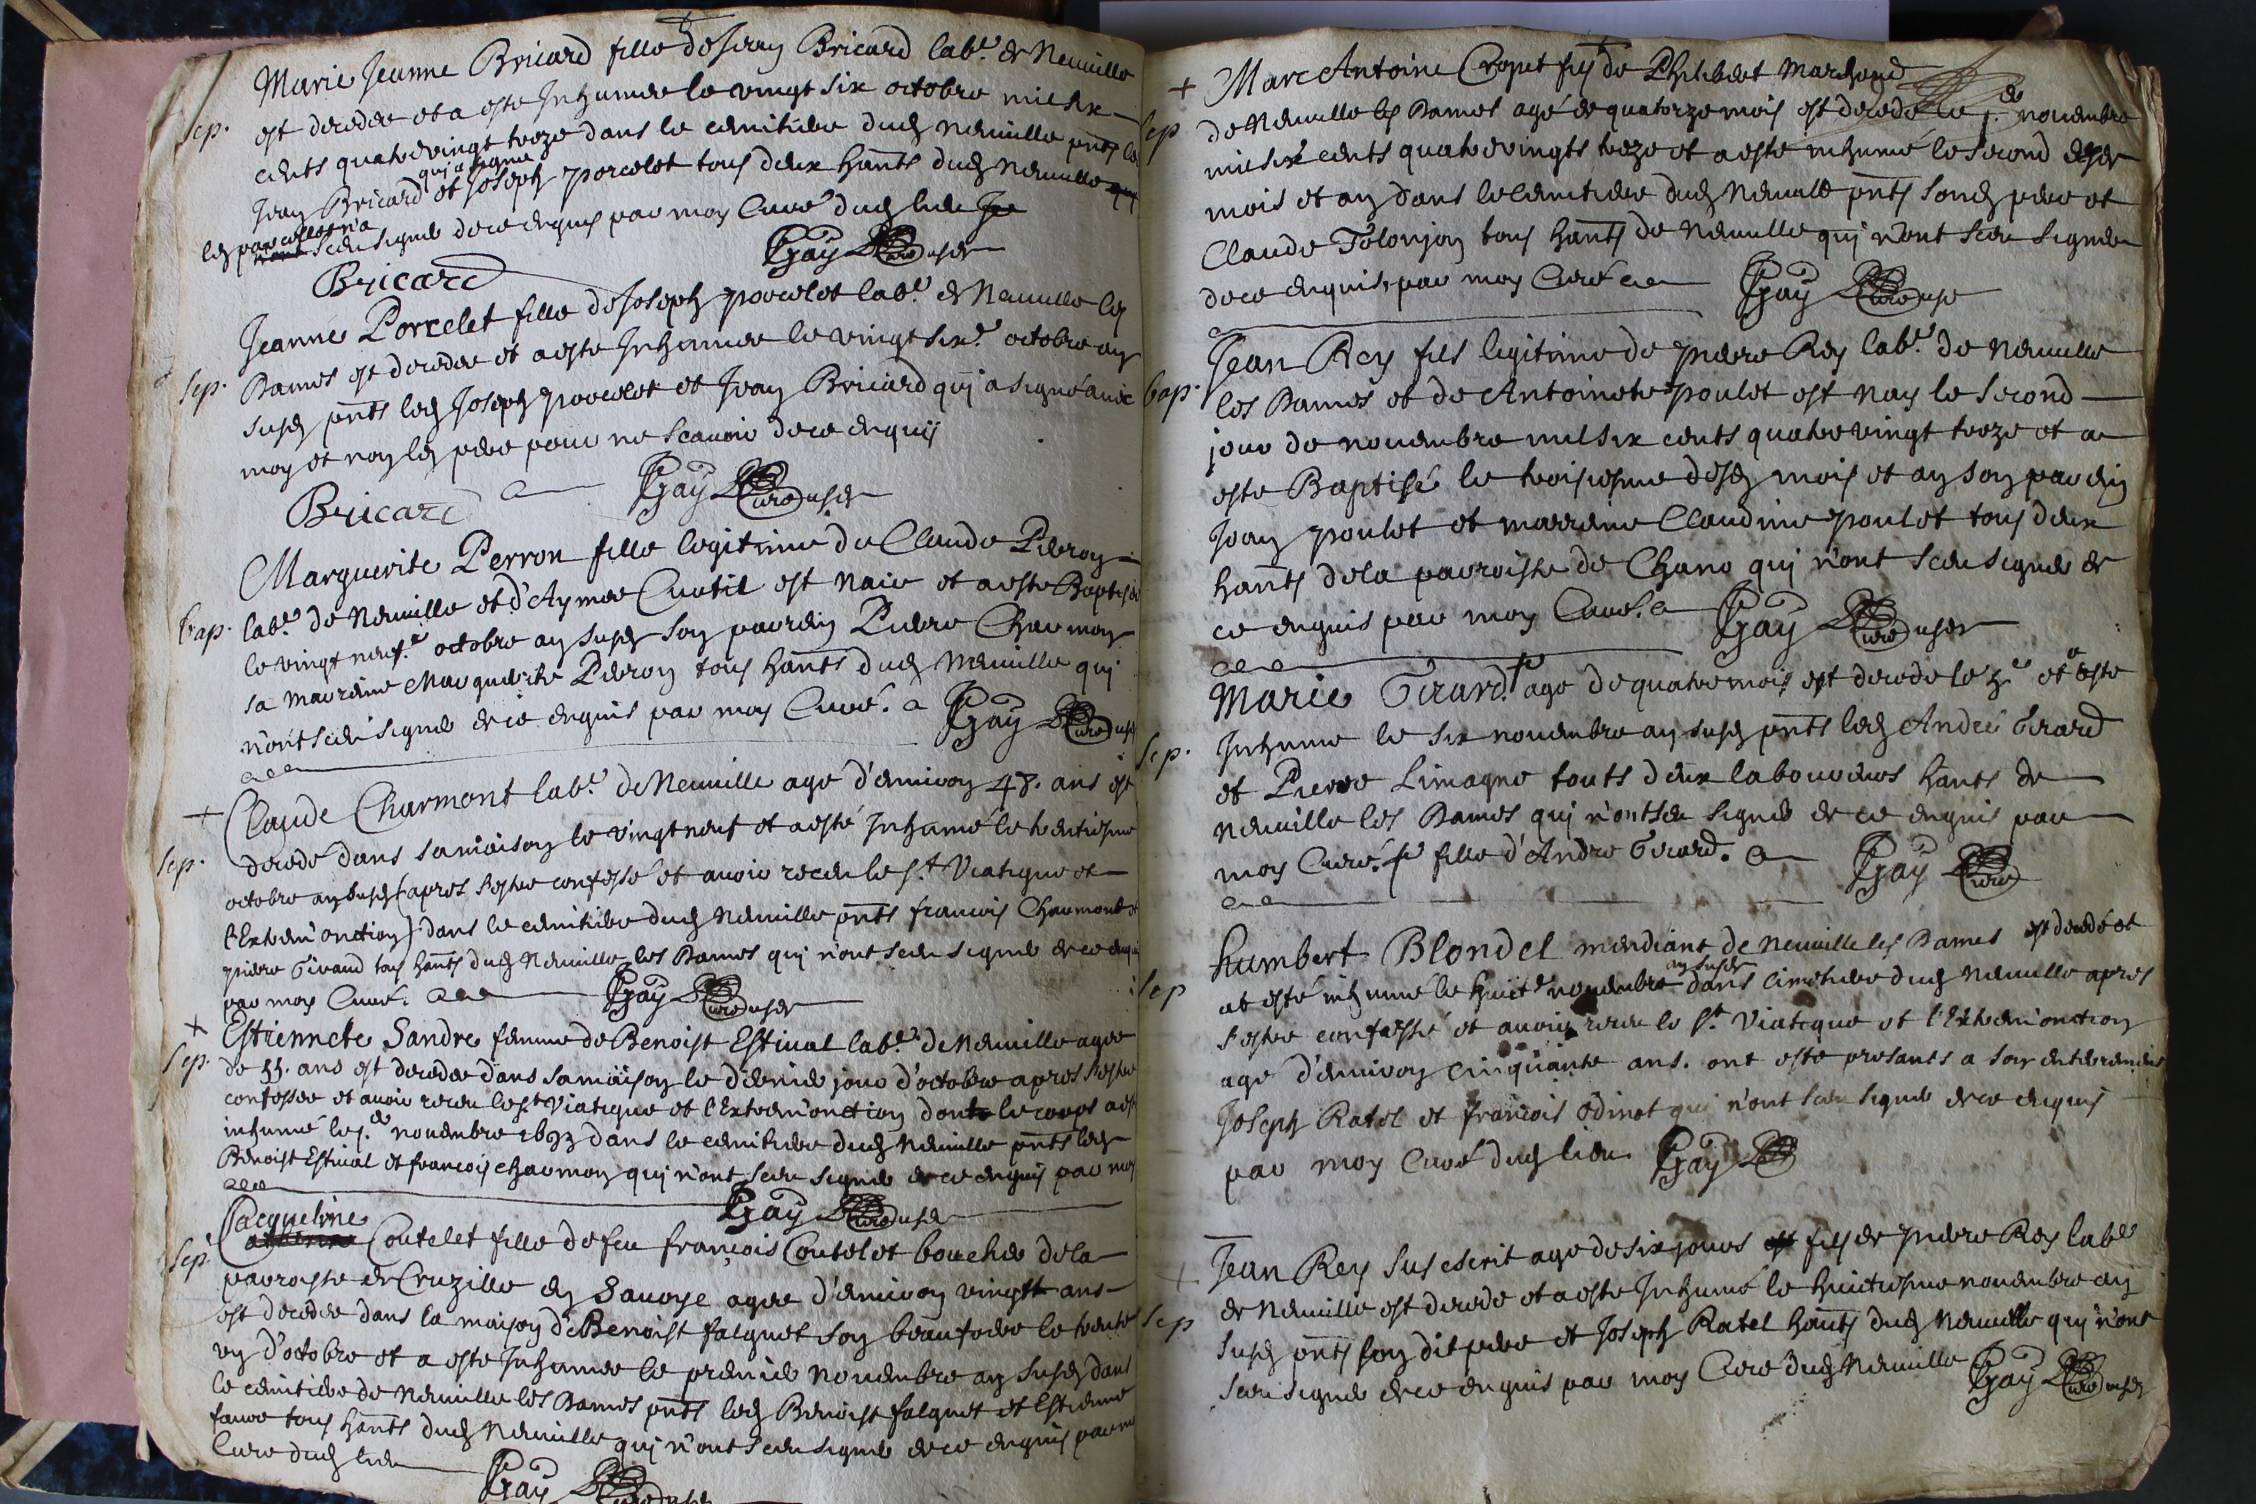 Marie Jeanne Bricard fille de Jean Bricard lab.r de Neuville
sep.
est decedee et a esté Inhumée le vingt six octobre mil six
cents quatrevingt treze dans le cemitiere dud Neuville pnts les
qui a signe
Jean Bricard et Joseph porcelet tous deux hants dud Neuville
led porcellet n'a
sceu signé de ce enquis par moy Curé dud lieu
Gay Curé susd
Bricard
Jeanne Porcelet fille de Joseph porcelet lab.r de Neuville les
sep.
Dames est decedee et a esté Inhumée le vingt six.e octobre an
susd pnts led Joseph porcelet et Jean Bricard qui a signé avec
moy et non led pere pour ne scavoir de ce enquis
Gay Curé susd
Bricard
Marguerite Perron fille legitime de Claude Perron
bap.
lab.r de Neuville et d'Aymee Curtil est naie et a esté Baptisée
le vingt neuf.e octobre an susd son parrin Pierre Charmon
sa marreine Marguerite Perron tous hants dud Neuville qui
n'ont sceu signé de ce enquis par moy Curé. Gay Curé susd
+
Claude Charmont lab.r de Neuville agé d'environ 48. ans est
sep.
decedé dans sa maison le vingt neuf et a esté Inhumé le trentiesme
octobre an susd (apres s'estre confessé et avoir receu le s.t Viatique et
l'Extrem'onction) dans le cemitiere dud Neuville pnts francois Charmont et
pierre Giraud tous hants dud Neuville les Dames qui n'ont sceu signé de ce enquis
par moy Curé. Gay Curé susd
+
Estiennete Sandre femme de Benoist Estival lab.r de Neuville agee
sep.
de 55. ans est decedee dans sa maison le dernier jour d'octobre apres s'estre
confessee et avoir receu le s.t Viatique et l'Extrem'onction dont le corps a esté
inhumé le j.er novembre 1693 dans le cemitiere dud Neuville pnts led
Benoist Estival et francois charmon qui n'ont sceu signé de ce enquis par moy
Gay Curé susd
Jacqueline
sep.
Coutelet fille de feu françois Coutelet boucher de la
parroisse de Cruzille en Savoye agee d'environ vingt ans
est decedee dans la maison de Benoist falquet son beaufrere le trente
un d'octobre et a esté Inhumee le premier novembre an susd dans
le cemitiere de Neuville les Dames pnts led Benoist falquet et Estienne
favre tous hants dud Neuville qui n'ont sceu signé de ce enquis par moy
Curé dud lieu
Gay Curé susd
+
Marc Antoine Cropet fils de Philibert Marchand
sep
de Neuville les Dames agé de quatorze mois est decedé le j.er novembre
mil six cents quatrevingts treze et a esté inhumé le second desd
mois et an dans le cemitiere dud Neuville pnts sond pere et
Claude Tolonjon tous hants de Neuville qui n'ont sceu signer
de ce enquis, par moy Curé Gay Curé susd
Jean Rey fils legitime de pierre Rey lab.r de Neuville
bap.
les Dames et de Antoinete poulet est nay le second
jour de novembre mil six cents quatrevingt treze et a
esté Baptisé le troisiesme desd mois et an son parrin
Jean poulet et marreine Claudine poulet tous deux
hants de la parroisse de Chano qui n'ont sceu signé de
ce enquis par moy Curé. Gay Curé susd
Marie Girard agé de quatre mois est decedé le 5.e et a esté
sep.
Inhumé le six novembre an susd pnts led André Girard
et Pierre Limagne touts deux laboureurs hants de
Neuville les Dames qui n'ont sceu signé de ce enquis par
moy Curé. fille d'Andre Girard.
Gay Curé
humbert Blondel mendiant de Neuville les Dames est decedé et
sep
an susd
at esté inhumé le huict.e novembre dans cimetiere dud Neuville apres
s'estre confessé et avoir receu le s.t Viatique et l'Extrem'onction
agé d'environ cinquante ans. ont esté presants a son enterrement
Joseph Ratel et françois Odinet qui n'ont sceu signé de ce enquis
par moy Curé dud lieu Gay
+
Jean Rey susescrit agé de six jours fils de pierre Rey lab.r
sep
de Neuville est decedé et a esté Inhumé le huictiesme novembre an
susd pnts son dit pere et Joseph Ratel hants dud Neuville qui n'ont
sceu signé de ce enquis par moy Curé dud Neuville Gay Curé susd